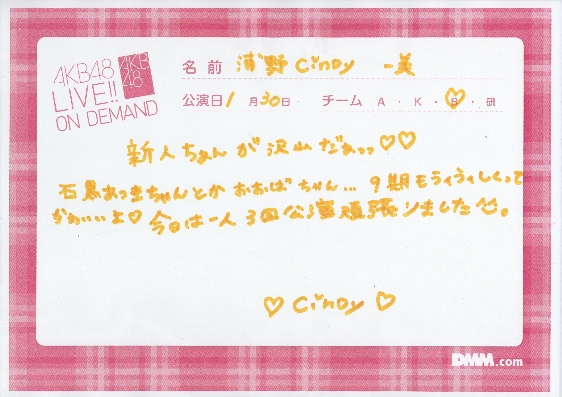 AKB48
LIVE!!
ON DEMAND
AKB
48
名前 浦野 Cindy 一美
公演日 1月30日 チーム A・K・B・研
新人ちゃんが沢山だぁっっ♡♡
石黒あつきちゃんとかおおばちゃん... 9期もういういしくって
かわいいよ♡ 今日は一人3回公演頑張りました^^。
♡ Cindy ♡
DMM.com